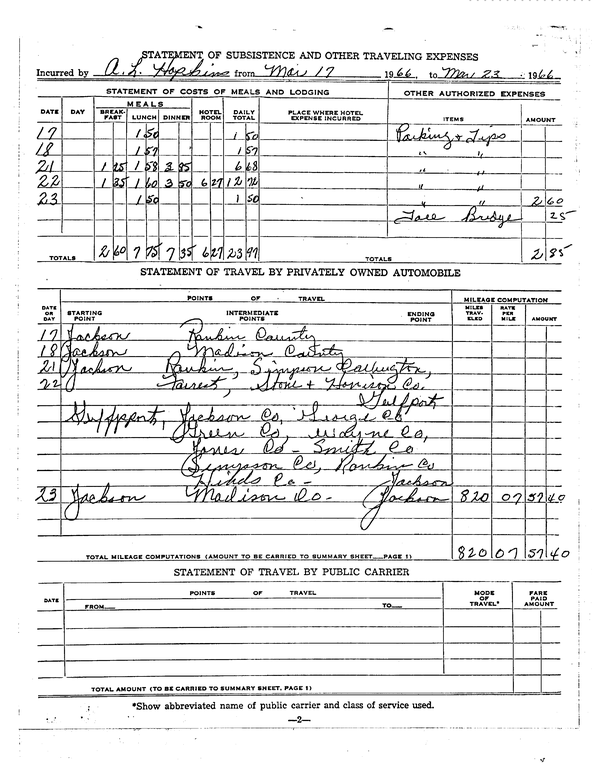 STATEMENT OF SUBSISTENCE AND OTHER TRAVELING EXPENSES
Incurred by A. L. Hopkins from Mar 17 1966 to Mar 23 1966
STATEMENT OF COSTS OF MEALS AND LODGING OTHER AUTHORIZED EXPENSES
MEALS
DATE DAY BREAK-FAST LUNCH DINNER HOTEL ROOM DAILY TOTAL PLACE WHERE HOTEL EXPENSE INCURRED ITEMS AMOUNT
17 1 50 1 50 Parking & Tips
18 1 57 1 57 " "
21 1 25 1 58 3 85 6 68 " "
22 1 35 1 60 3 50 6 27 12 72 " "
23 1 50 1 50 " " 2 60
Bridge 25
TOTALS 2 60 7 75 7 35 6 27 23 97 TOTALS 2 85
STATEMENT OF TRAVEL BY PRIVATELY OWNED AUTOMOBILE
POINTS OF TRAVEL MILEAGE COMPUTATION
DATE OR DAY STARTING POINT INTERMEDIATE POINTS ENDING POINT MILES TRAV-ELED RATE PER MILE AMOUNT
17 Jackson Rankin County
18 Jackson Madison County
21 Jackson Rankin, Simpson
22 Forrest, Stone & Co.
Gulfport
Gulfport, Jackson Co, George Co
Green Co, Wayne Co,
Jones Co - Smith Co
Simpson Co, Rankin Co
Hinds Co - Jackson
23 Jackson Madison Co - Jackson 820 07 57 40
TOTAL MILEAGE COMPUTATIONS (AMOUNT TO BE CARRIED TO SUMMARY SHEET PAGE 1) 820 07 57 40
STATEMENT OF TRAVEL BY PUBLIC CARRIER
DATE POINTS OF TRAVEL MODE OF TRAVEL* FARE PAID AMOUNT
FROM TO
TOTAL AMOUNT (TO BE CARRIED TO SUMMARY SHEET, PAGE 1)
*Show abbreviated name of public carrier and class of service used.
—2—